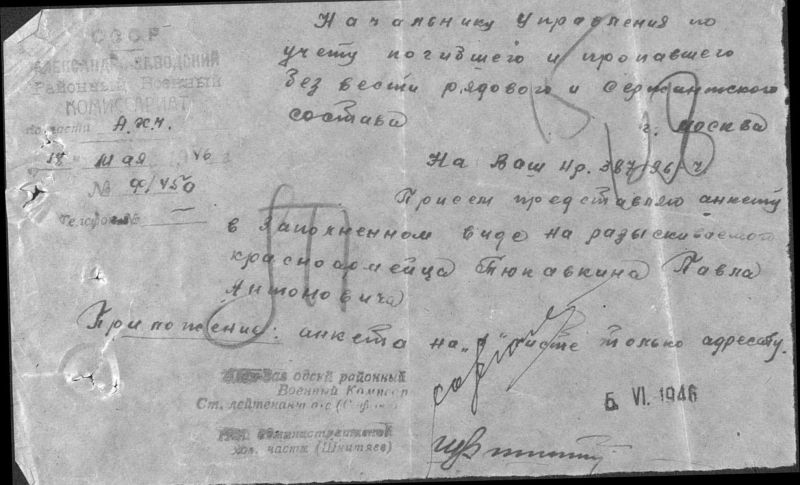 СССР
Районный Военный
КОМИССАРИАТ
По части А.х.ч.
18 " Мая 46
№ Ф/450
Телефон №
Начальнику Управления по
учету погибшего и пропавшего
без вести рядового и сержантского
состава г. Москва
На Ваш нр. 387 96
Присем представляю анкету
в заполненном виде на разыскиваемого
красноармейца Тюкавкина Павла
Антоновича
Приложение: анкета на листе только адресату.
районный
Военный Комиссар
Ст. лейтенант а/с
административной
хоз. части (Шнитяев)
5 VI. 1946